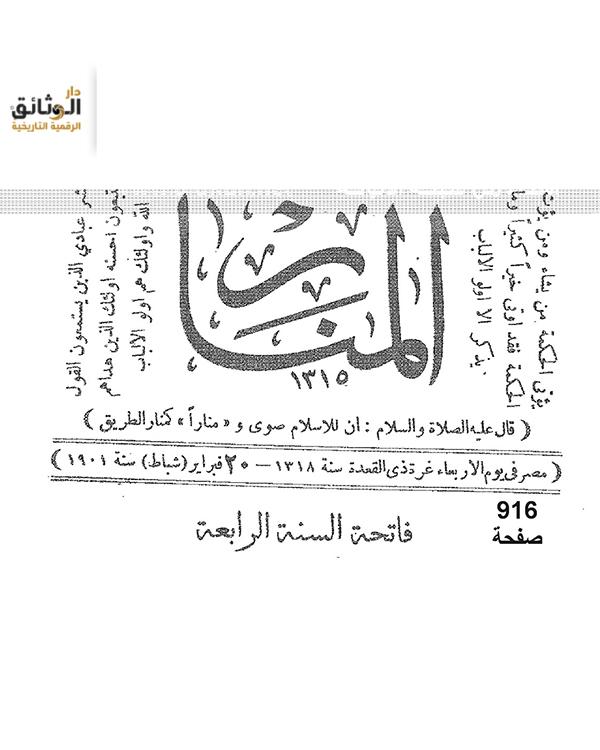 دار
الوثائق
الرقمية التاريخية
يؤتى الحكمة من يشاء ومن يؤت
الحكمة فقد اوتى خيراً كثيراً وما
يذكر الا اولو الالباب
المنار
١٣١٥
عبادي الذين يستمعون القول
احسنه اولئك الذين هداهم
الله واولئك هم اولو الالباب
﴿ قال عليه الصلاة والسلام : ان للاسلام صوى و « مناراً » كمنار الطريق ﴾
﴿ مصر في يوم الاربعاء غرة ذى القعدة سنة ١٣١٨ — ٢٠ فبراير (شباط) سنة ١٩٠١ ﴾
916
صفحة
فاتحة السنة الرابعة